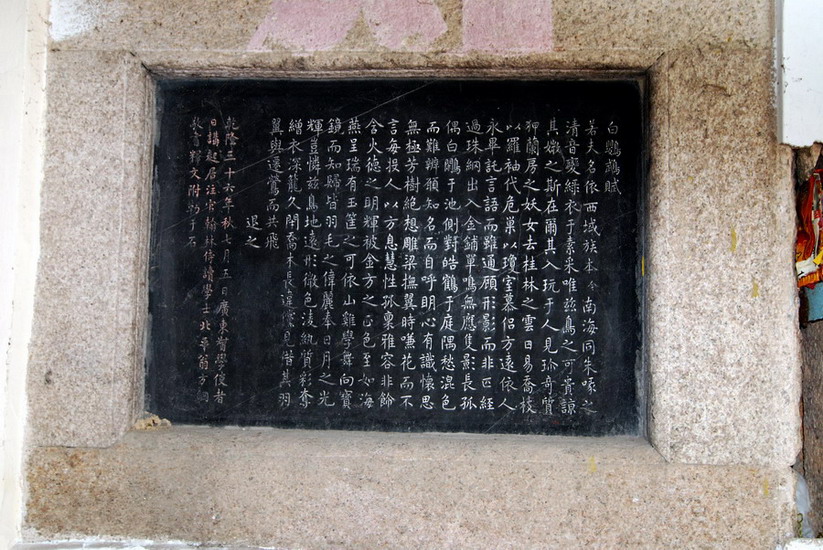 白鸚鵡賦
若夫名依西域族本今南海同朱喙之
清音變綠衣于素采唯玆鳥之可貴諒
其媺之斯在爾其入玩于人見珍奇質
狎蘭房之妖女去桂林之雲日易喬枝
以羅袖代危巢以瓊室慕侶方遠依人
永畢託言語而雖通顧形影而非匹經
過珠網出入金鋪單鳴無應隻影長孤
偶白鷴于池側對皓鶴于庭隅愁混色
而難辨願知名而自呼明心有識懷思
無極芳樹絕想雕梁撫翼時嗛花而不
言每投人以方息慧性孤稟雅容非飾
含火德之明輝被金方之正色至如海
燕呈瑞有玉筐之可依山雞學舞向寶
鏡而知歸皆羽毛之偉麗奉日月之光
輝豈憐玆鳥地遠形微色淩紈質彩奪
繒衣深籠久閉喬木長違儻見借其羽
翼與遷鶯而共飛
退之
乾隆三十六年秋七月五日廣東督學使者
日講起居注官翰林侍讀學士北平翁方綱
敬書釋文附勒于石